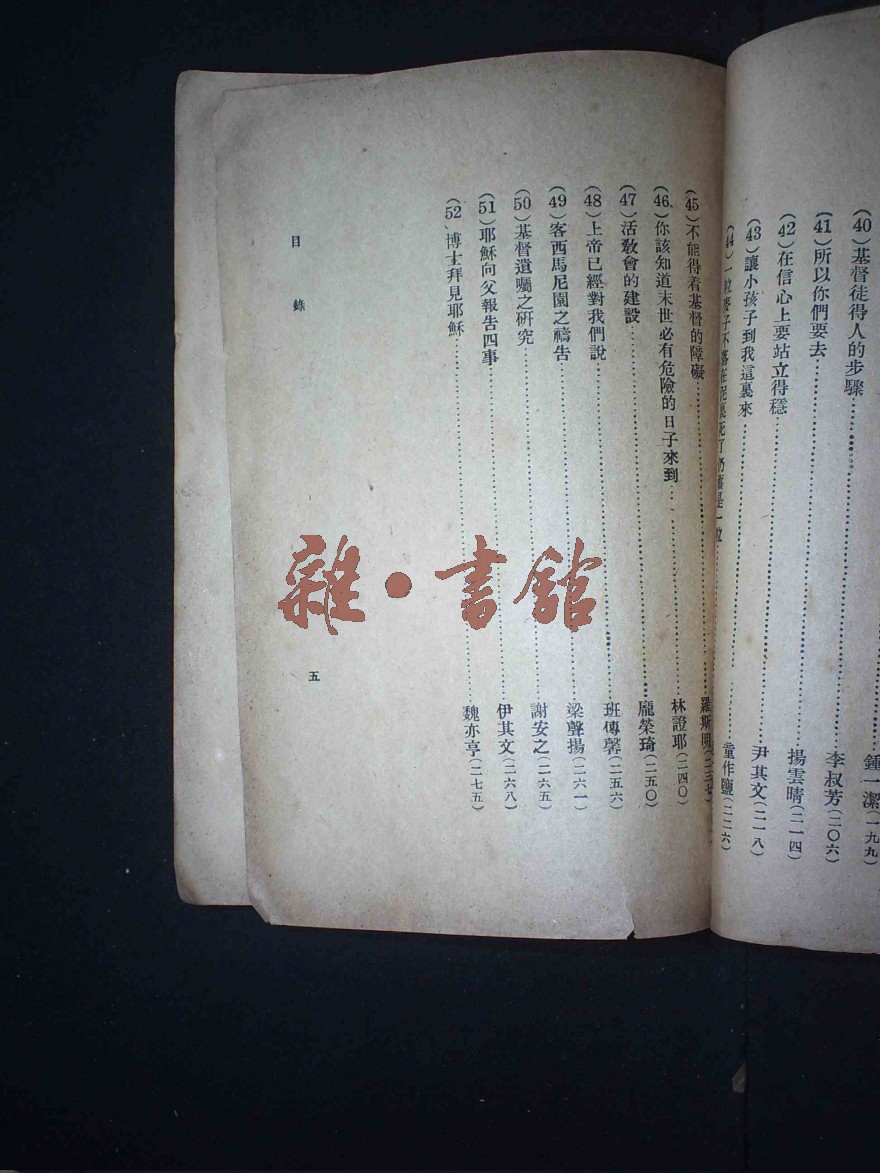 (40)基督徒得人的步驟………鍾一潔(一九九)
(41)所以你們要去………李叔芳(二〇六)
(42)在信心上要站立得穩………揚雲晴(二一四)
(43)讓小孩子到我這裏來………尹其文(二一八)
(44)一粒麥子不落在泥裏死了仍舊是一粒………童作鹽(二二六)
(45)不能得着基督的障礙………羅斯明(二三七)
(46)你該知道末世必有危險的日子來到………林證耶(二四〇)
(47)活敎會的建設………龐榮琦(二五〇)
(48)上帝已經對我們說………班傳馨(二五六)
(49)客西馬尼園之禱告………梁聲揚(二六一)
(50)基督遺囑之研究………謝安之(二六五)
(51)耶穌向父報告四事………伊其文(二六八)
(52)博士拜見耶穌………魏亦亨(二七五)
目錄
五
雜·書館